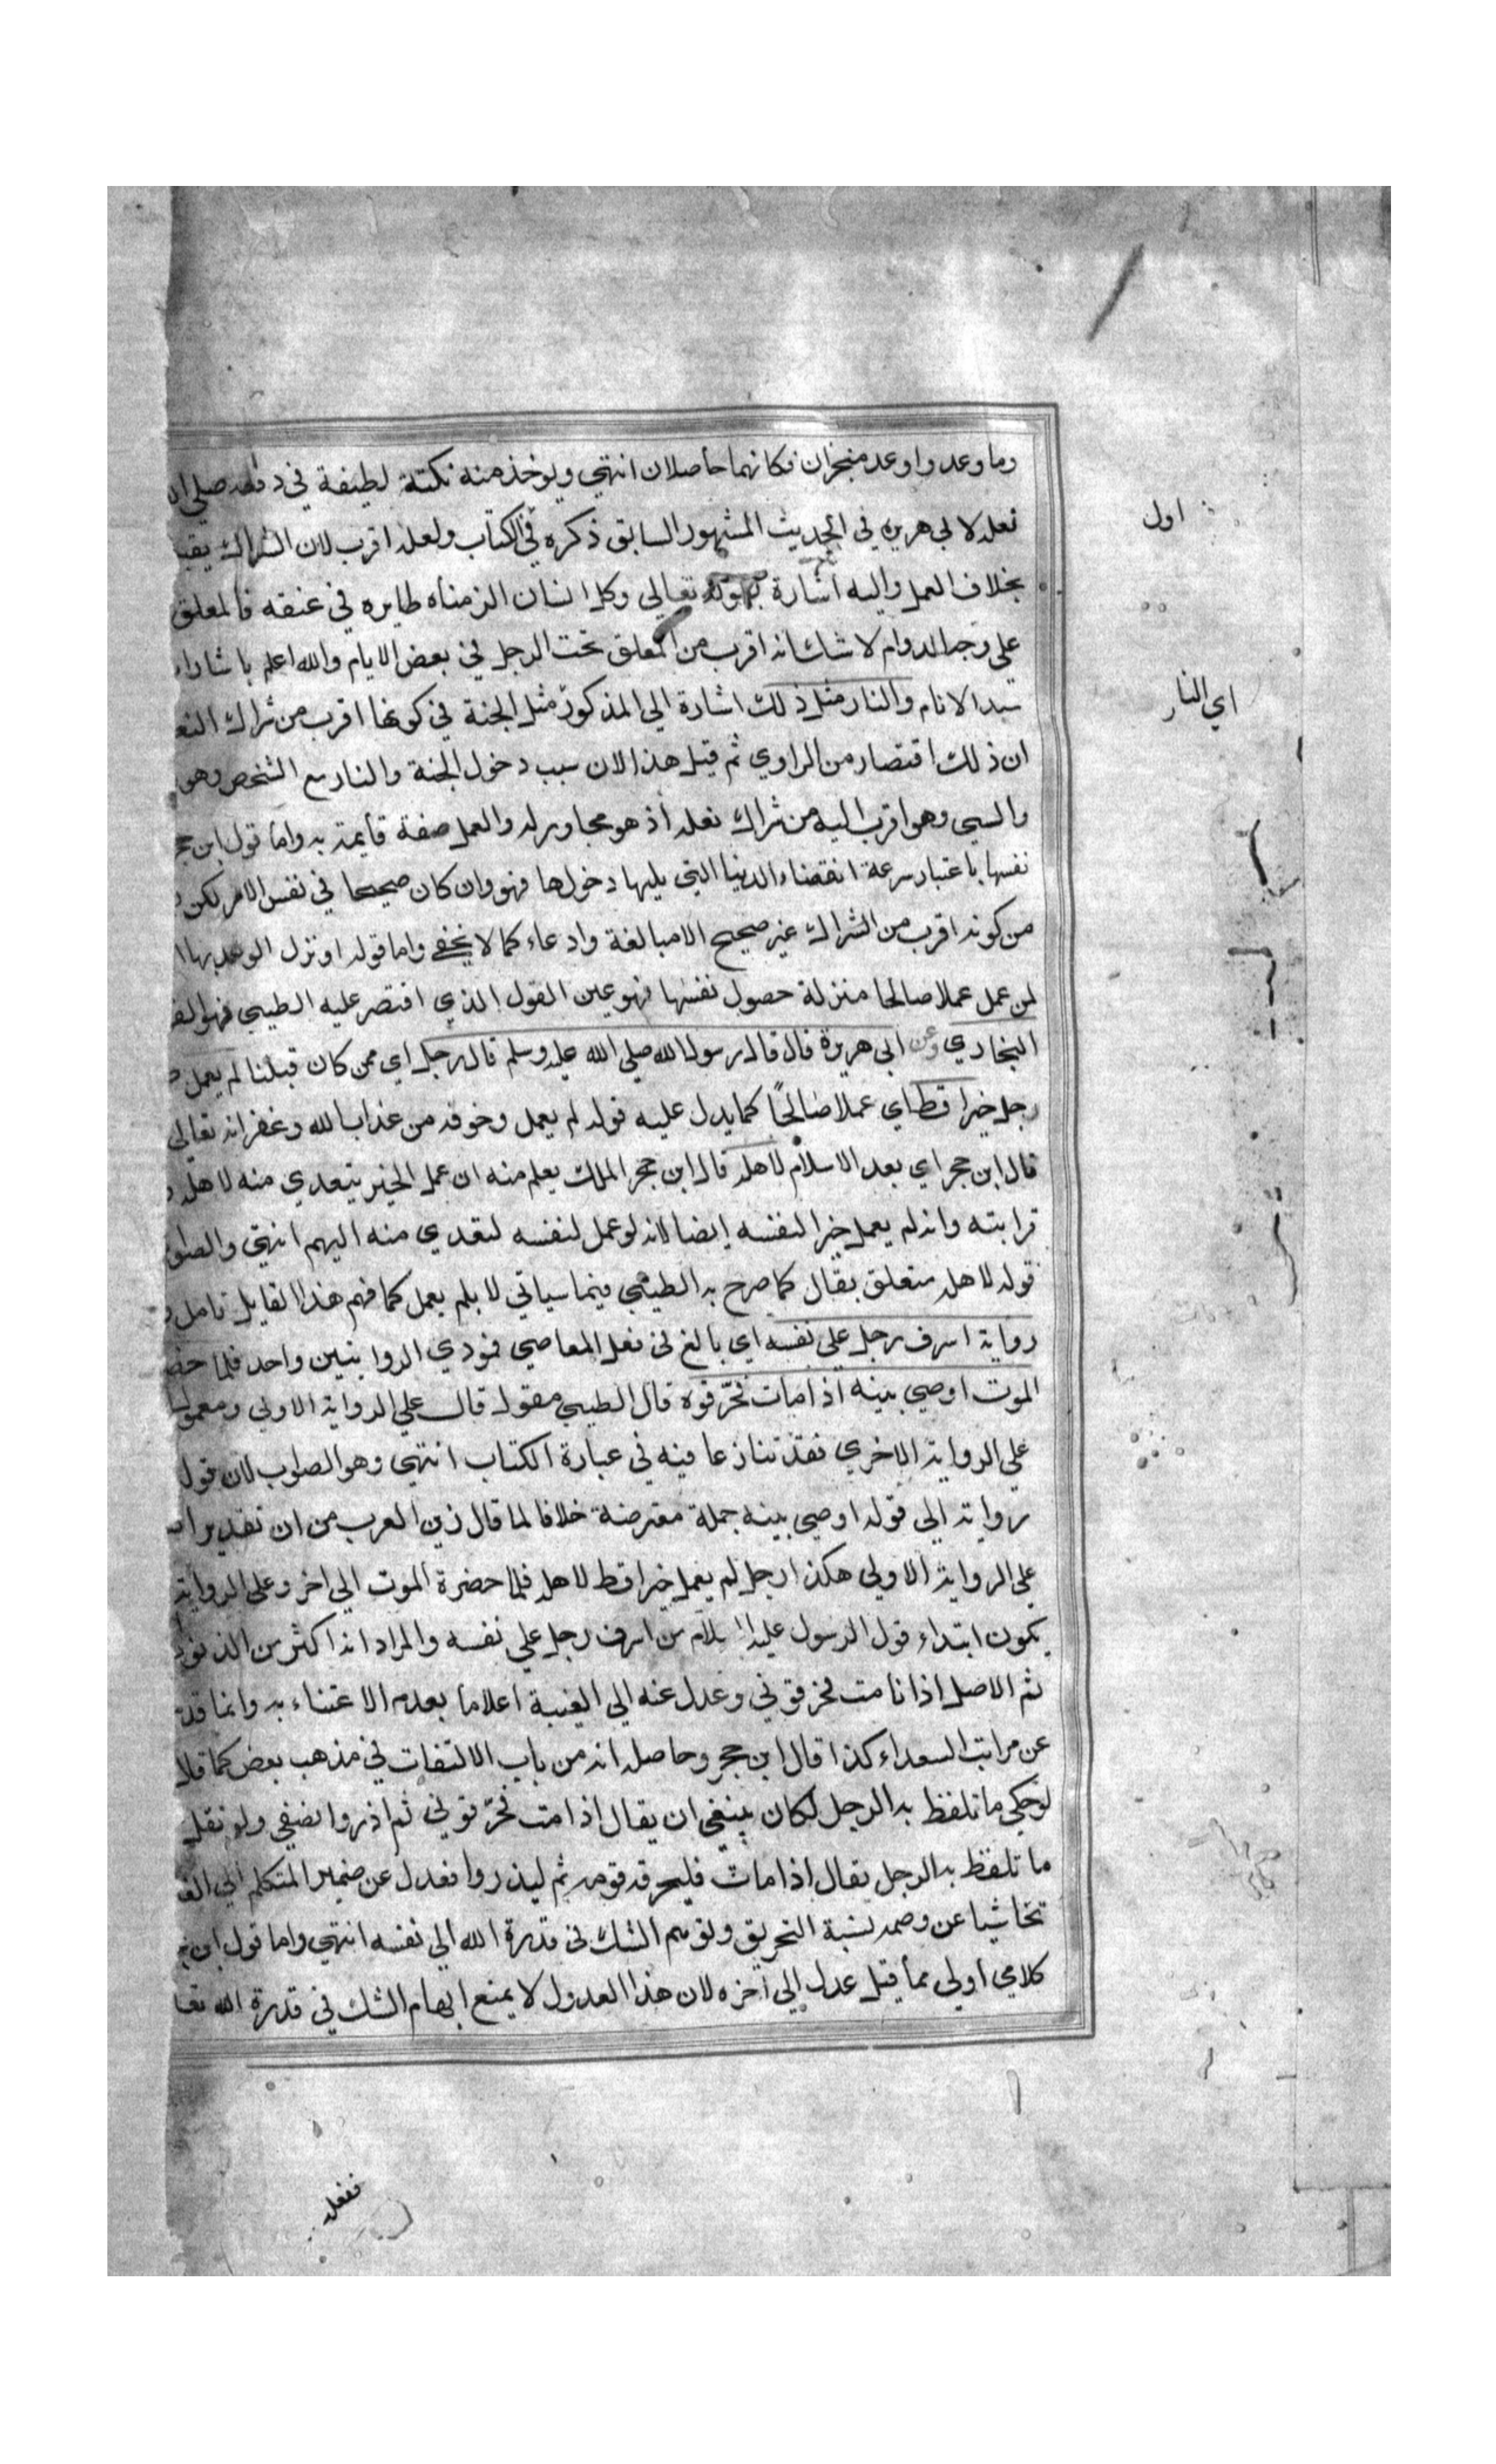 وما وعد واوعد منجزان فكانهما حاصلان انتهي ويوخذ منه نكتة لطيفة في دفعه صلي ال
نعله لابي هريره في الحديث المشهور السابق ذكره في الكتاب ولعله اقرب لان الشراك يقبل
بخلاف العمل واليه اشارة بقوله تعالي وكل انسان الزمناه طايره في عنقه فالمعلق
علي وجه الدوام لا شك انه اقرب من المعلق تحت الرجل في بعض الايام والله اعلم باشارات
سيد الانام والنار مثل ذلك اشارة الي المذكور مثل الجنة في كونها اقرب من شراك النعل
ان ذلك اقتصار من الراوي ثم قيل هذا لان سبب دخول الجنة والنار مع الشخص وهو
والسيي وهو اقرب اليه من شراك نعله اذ هو مجاور له والعمل صفة قايمة به واما قول ابن حجر
نفسها باعتبار سرعة انقضاء الدنيا التي يليها دخولها فهو وان كان صحيحا في نفس الامر لكن
من كونه اقرب من الشراك غير صحيح الا مبالغة وادعاء كما لا يخفي واما قوله او نزل الوعد بها
لمن عمل عملا صالحا منزلة حصول نفسها فهو عين القول الذي اقتصر عليه الطيبي فهو
البخاري وعن ابي هريرة قال قال رسول الله صلي الله عليه وسلم قال رجل اي ممن كان قبلنا لم يعمل
رجل خيرا قط اي عملا صالحًا كما يدل عليه قوله لم يعمل وخوفه من عذاب الله وغفرانه تعالي
قال ابن حجر اي بعد الاسلام لاهله قال ابن حجر الملك يعلم منه ان عمل الخير يتعدي منه لاهله
قرابته وانه لم يعمل خيرا لنفسه ايضا لانه لو عمل لنفسه لتعدي منه اليهم انتهي والصوا
قوله لاهله متعلق بقال كما صرح به الطيبي فيما سياتي لا بلم يعمل كما فهم هذا القايل تامل
رواية اسرف رجل علي نفسه اي بالغ في فعل المعاصي فمودي الروايتين واحد فلما حضر
الموت اوصي بنيه اذا مات فحرّقوه قال الطيبي مقول قال علي الرواية الاولي ومعمول
علي الرواية الاخري فقد تنازعا فيه في عبارة الكتاب انتهي وهو الصواب لان قول
رواية الي قوله اوصي بنيه جملة معترضة خلافا لما قال زين العرب من ان تقدير
علي الرواية الاولي هكذا رجل لم يعمل خيرا قط لاهله فلما حضرة الموت الي اخر وعلي الرواية
يكون ابتداء قول الرسول عليه السلام من اسرف رجل علي نفسه والمراد انه اكثر من الذنوب
ثم الاصل اذا انا مت فحرقوني وعدل عنه الي الغيبة اعلاما بعدم الاعتناء به وانما
عن مراتب السعداء كذا قال ابن حجر وحاصله انه من باب الالتفات في مذهب بعض كما قلا
لو حكي ما تلفظ به الرجل لكان ينبغي ان يقال اذا مت فحرّقوني ثم اذروا نصفي ولو نقل
ما تلفظ به الرجل يقال اذا مات فليحرقه قومه ثم ليذروا فعدل عن ضمير المتكلم الي الغ
تحاشيا عن وصمة نسبة التحريق وتوهم الشك في قدرة الله الي نفسه انتهي واما قول ابن
كلامي اولي مما قيل عدل الي اخره لان هذا العدول لا يمنع ايهام الشك في قدرة الله تعا
اول
اي النار
ففعل